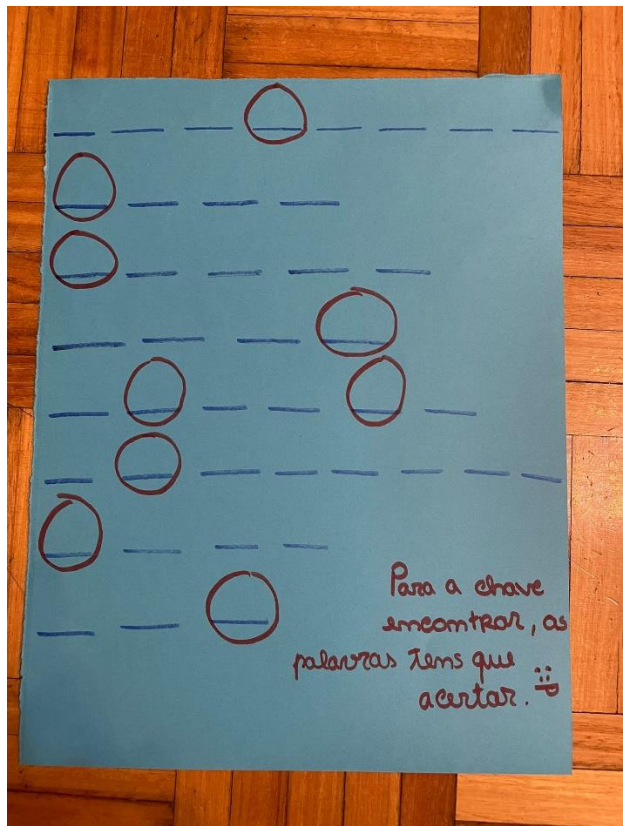 Para a chave
encontrar, as
palavras tens que
acertar. :P